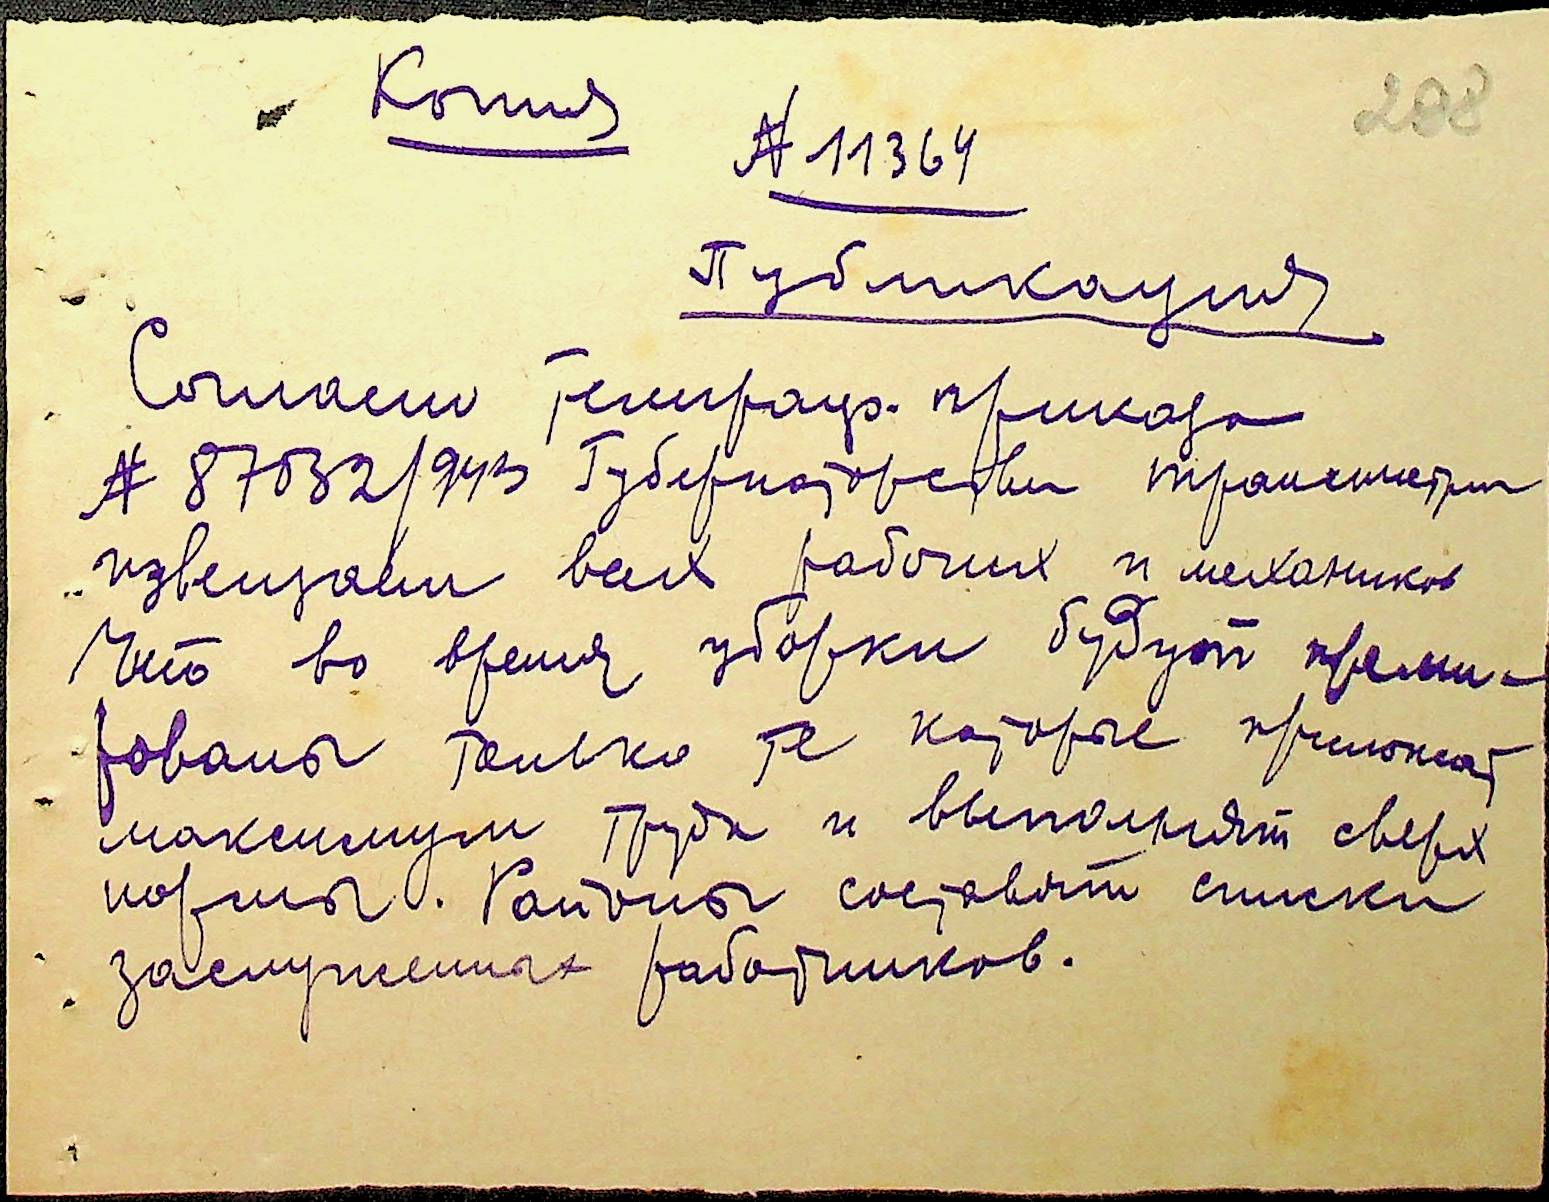 Копия
208
№ 11364
Публикация
Согласно телеграф. приказа
№ 87032/943 Губернаторства Транснистрии
извещаем всех рабочих и механиков
Что во время уборки будут преми-
рованы только те которые приложат
максимум труда и выполнят сверх
нормы. Районы составят списки
заслуженных работников.